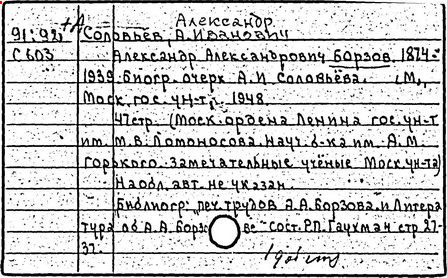 Александр
91:92 +А Соловьёв, А. Иванович
С603 Александр Александрович Борзов, 1874-
1939. Биогр. очерк А. И Соловьёва. М.,
Моск. гос. ун-т, 1948.
47 стр. (Моск. ордена Ленина гос. ун-т
им. М. В. Ломоносова. Науч. б-ка им. А. М.
Горького. Замечательные учёные Моск. ун-та)
На обл. авт. не указан.
Библиогр: "печ. трудов А. А. Борзова и Литера
тура об А. А. Борзове" сост. Р.П. Гаухман стр. 27-
37.